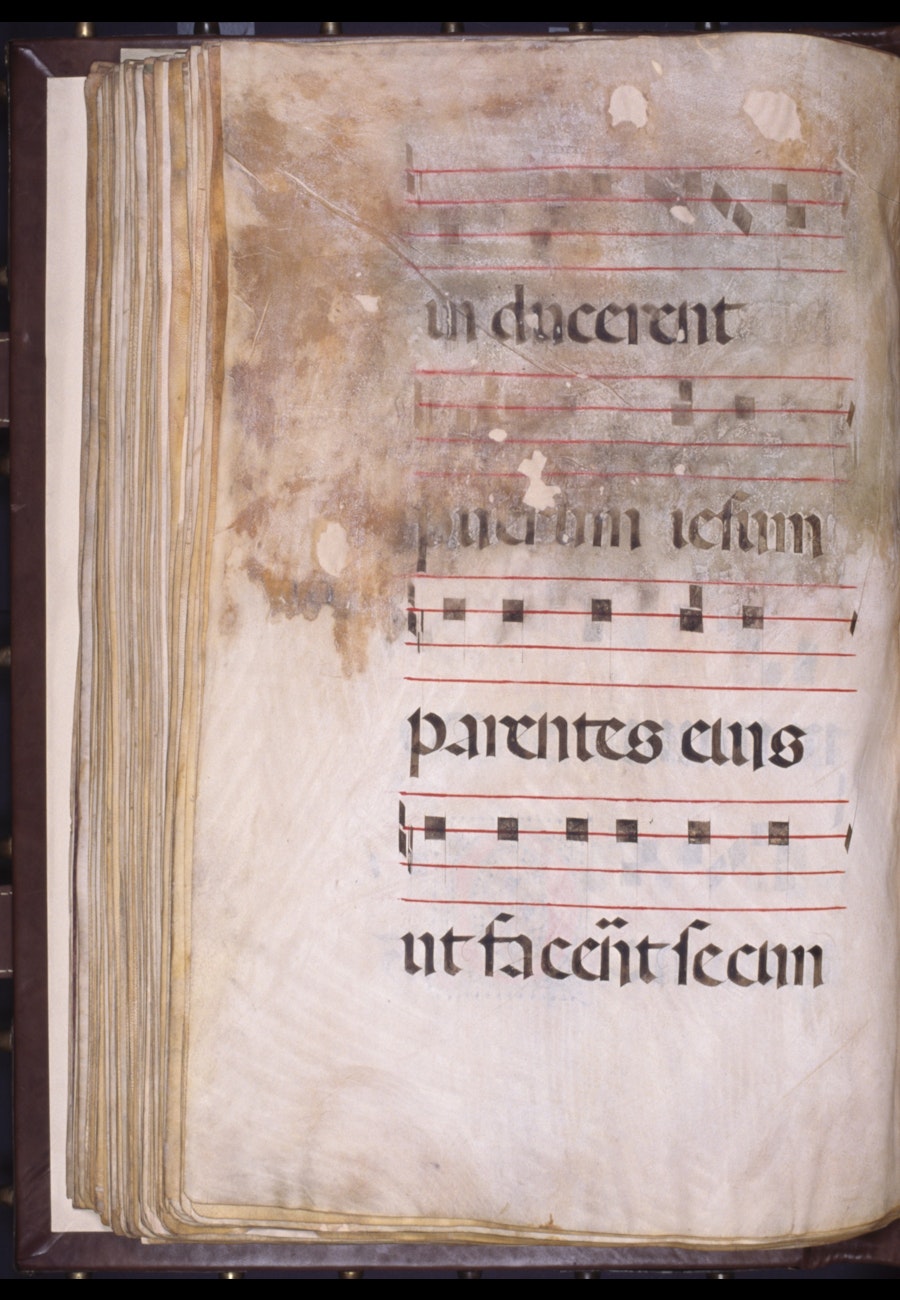 in ducerent
puerum iesum
parentes eius
ut facerent secun